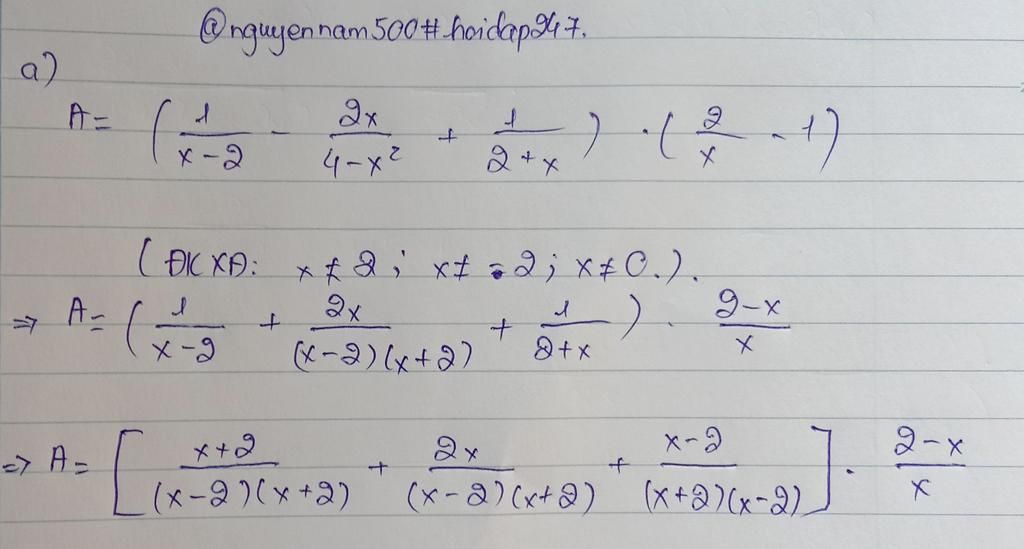 @nguyennam500#hoidap247.
a)
A = ( 1/(x-2) - 2x/(4-x²) + 1/(2+x) ) . ( 2/x - 1 )
( ĐKXĐ: x ≠ 2 ; x ≠ -2 ; x ≠ 0. ).
=> A = ( 1/(x-2) + 2x/((x-2)(x+2)) + 1/(2+x) ) . (2-x)/x
=> A = [ (x+2)/((x-2)(x+2)) + 2x/((x-2)(x+2)) + (x-2)/((x+2)(x-2)) ] . (2-x)/x